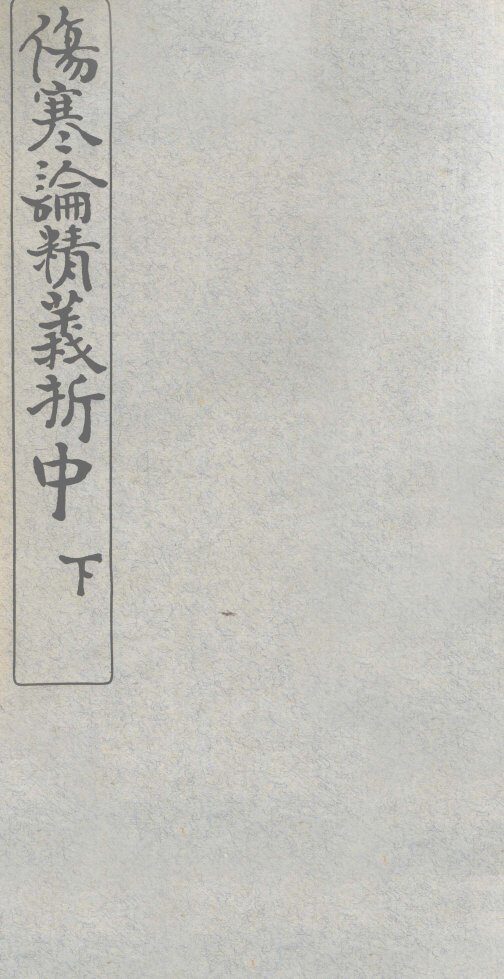 傷寒論精義折中
下